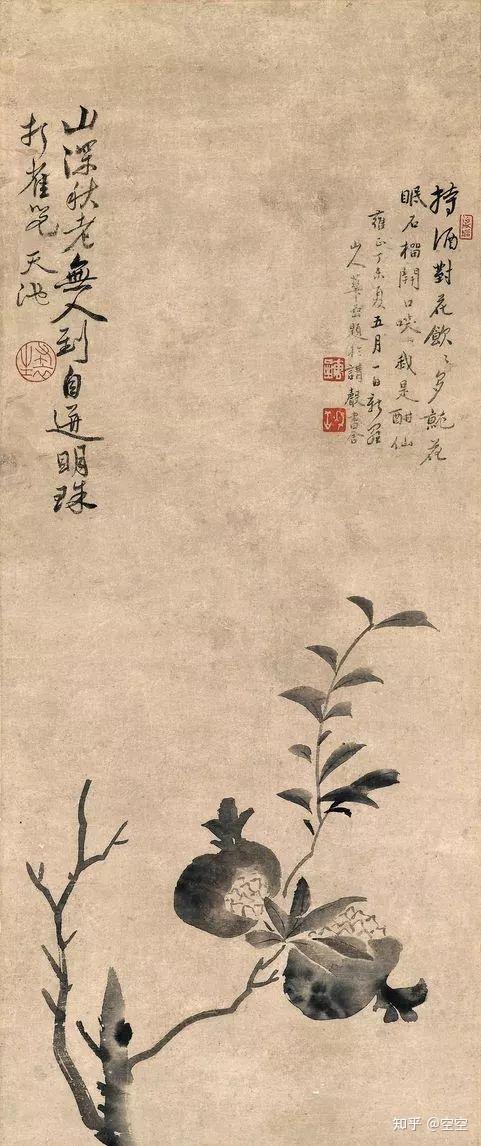 持酒對花飲〻多就花
眠石榴開口咲我是酣仙
雍正丁未夏五月一日新羅
山人華喦題於聲書舍
山深秋老無人到自迸明珠
打雀兒 天池
知乎 @空空